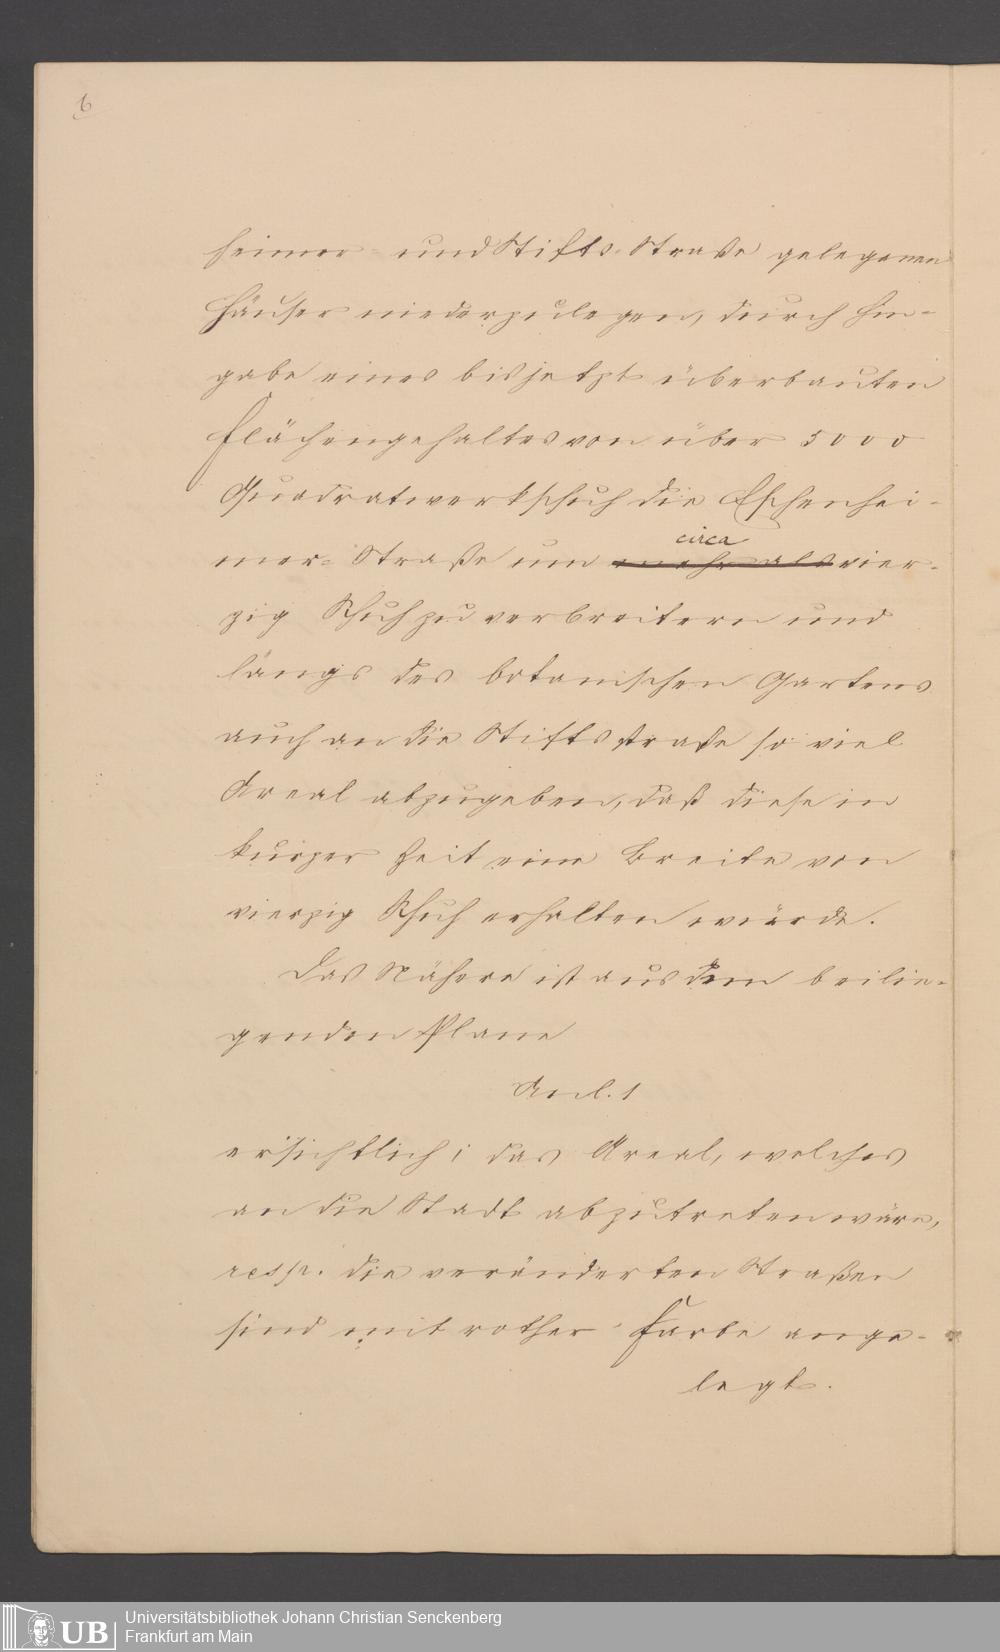 6
heimer- und Stifts-Straße gelegenen
Häuser niederzulegen, durch Hin-
gabe eines bis jetzt überbauten
Flächengehaltes von über 5000
Quadratwerkschuh die Eschenhei-
circa
mer-Straße um mehr als vier-
zig Schuh zu verbreitern und
längs des botanischen Gartens
auch an die Stiftsstraße so viel
Areal abzugeben, daß diese in
kurzer Zeit eine Breite von
vierzig Schuh erhalten würde.
Das Nähere ist aus dem beilie-
genden Plane
Anl. 1
ersichtlich; das Areal, welches
an die Stadt abzutreten wäre,
resp. die veränderten Straßen
sind mit rother Farbe ange-
legt.
UB Universitätsbibliothek Johann Christian Senckenberg
Frankfurt am Main